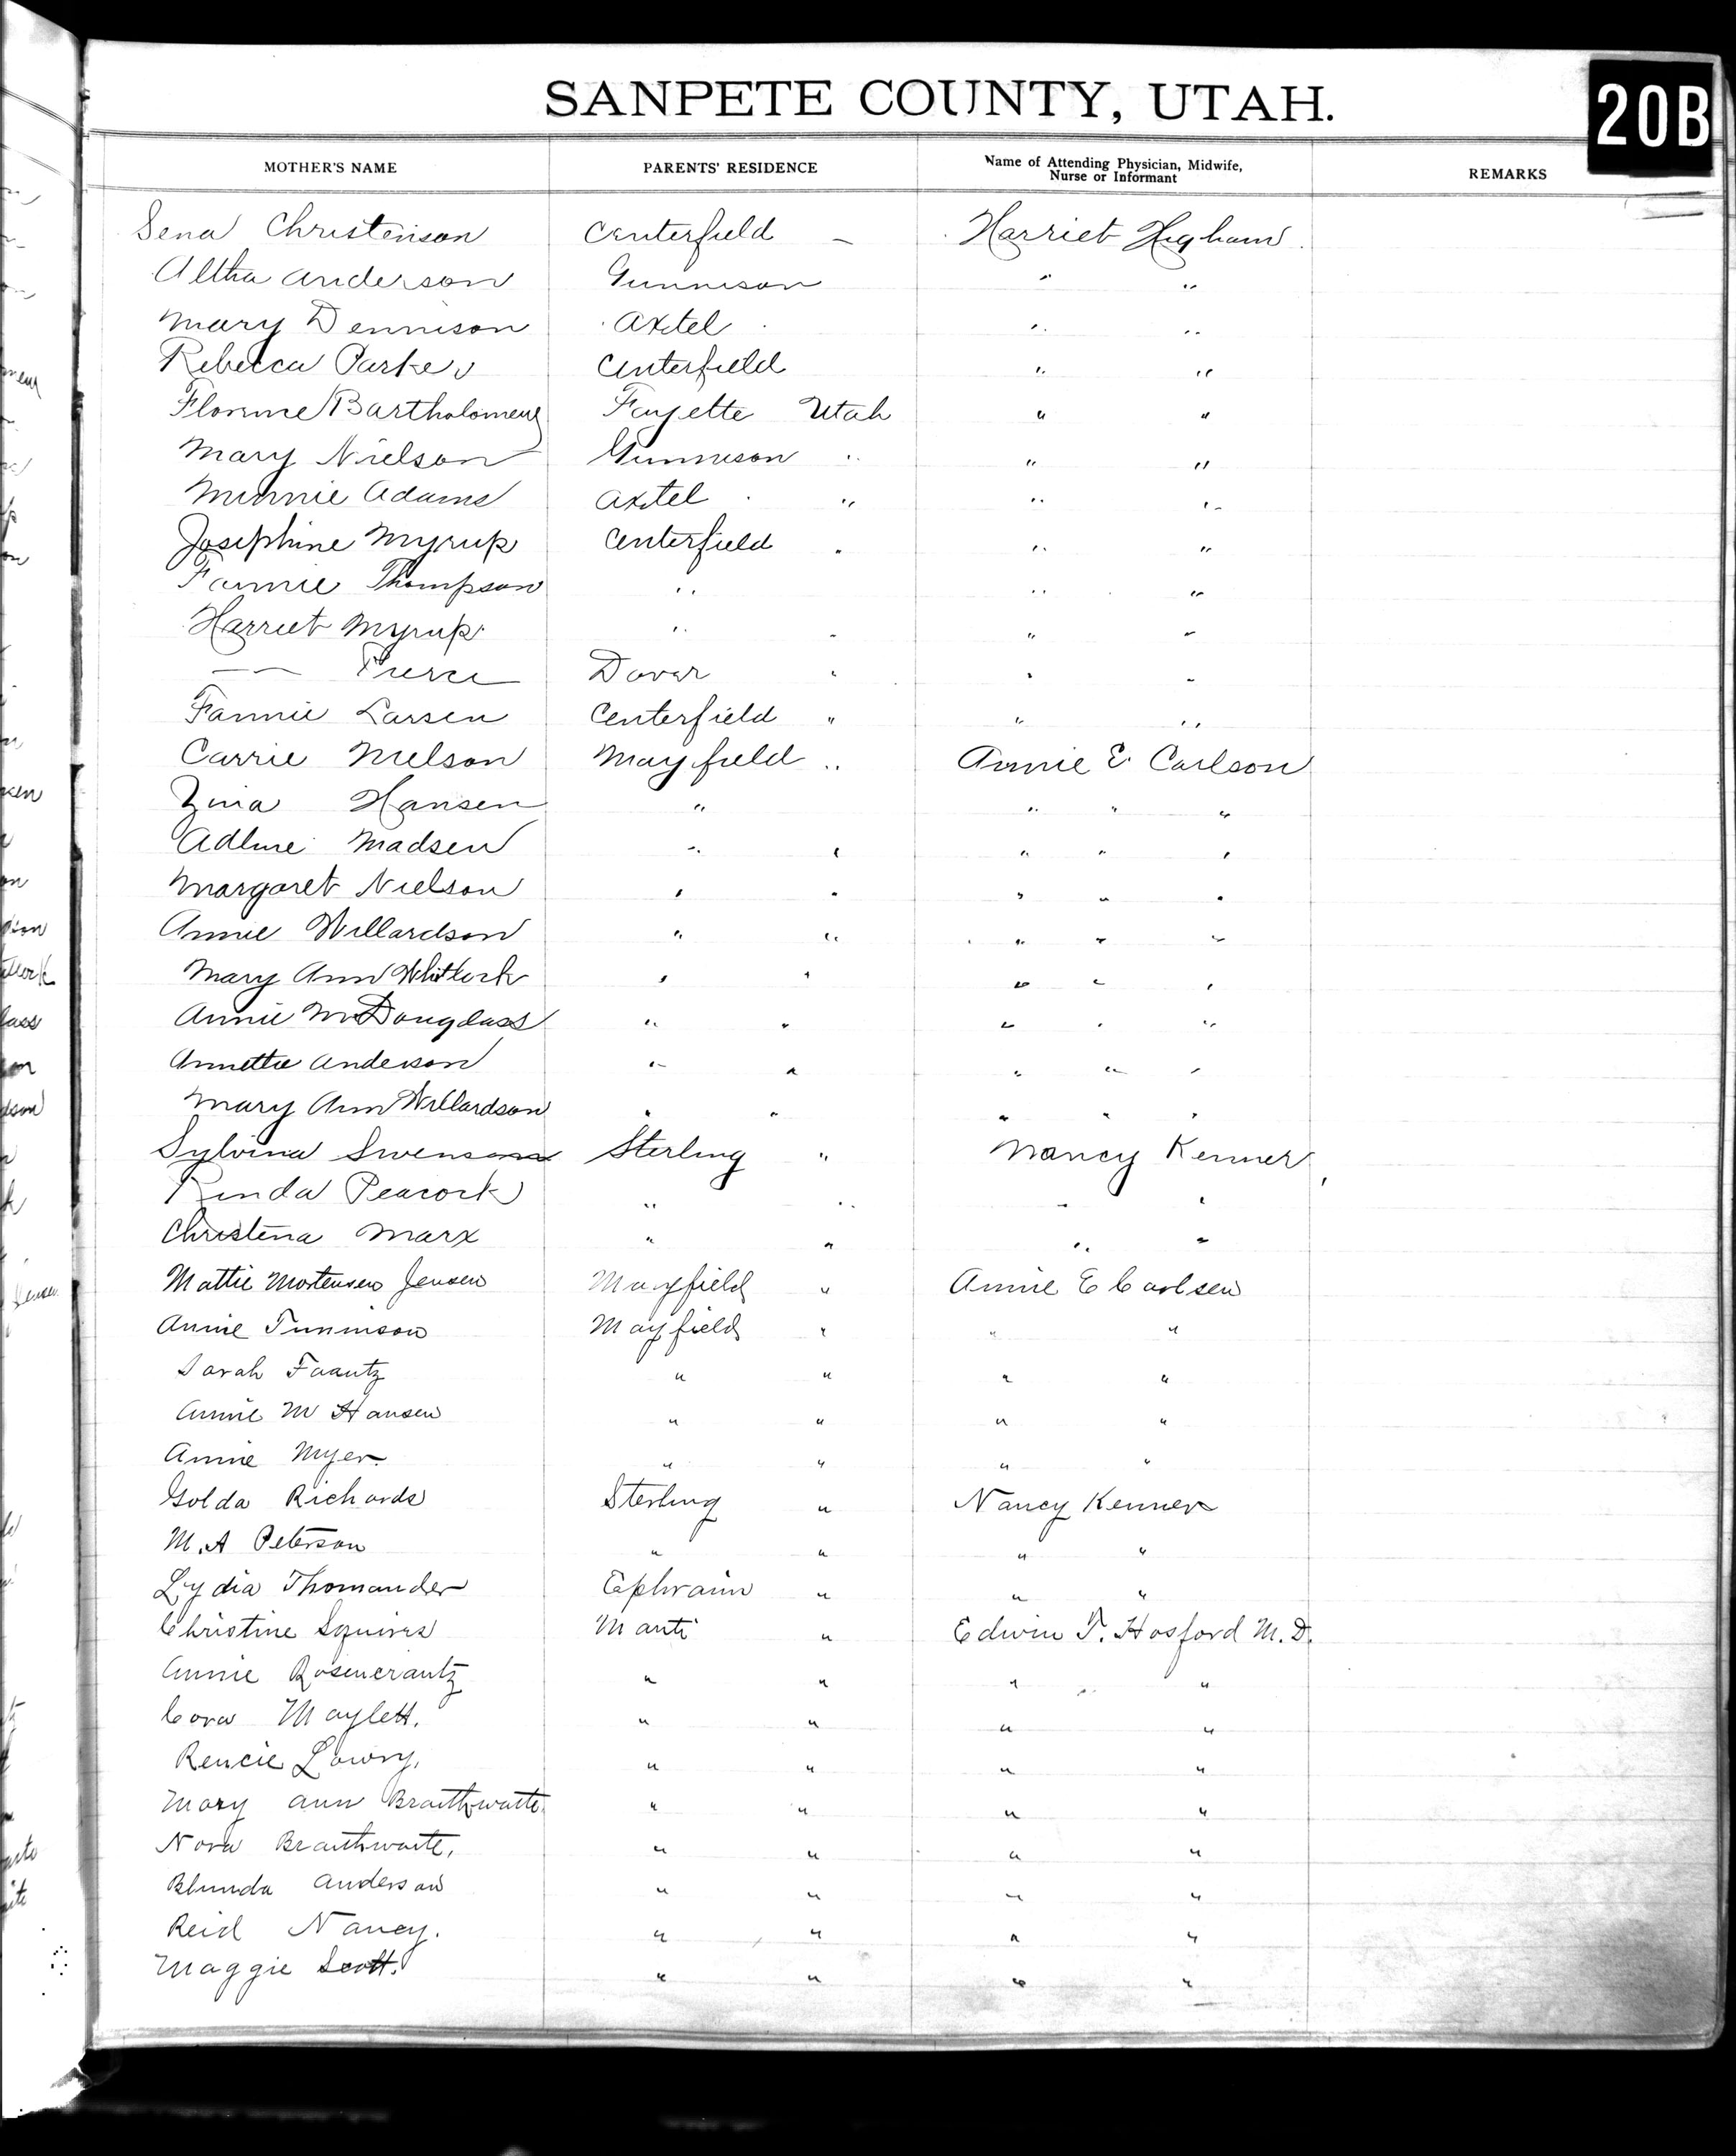 SANPETE COUNTY, UTAH.
20B
MOTHER'S NAME PARENTS' RESIDENCE Name of Attending Physician, Midwife, Nurse or Informant REMARKS
Sena Christenson Centerfield — Harriet Higham.
Altha Anderson Gunnison " "
Mary Dennison Axtel " "
Rebecca Parker Centerfield " "
Bartholomew Fayette Utah " "
Mary Nielson Gunnison " " "
Minnie Adams Axtel " " "
Josephine Myrup Centerfield " " "
Fannie Thompson " " "
Harriet Myrup " " " "
—— Pierce Dover " " "
Fannie Larsen Centerfield " " "
Carrie Nielson Mayfield " Annie E. Carlson
Zina Hansen " " " "
Adline Madsen " " " " "
Margaret Nielson " " " " "
Annie Willardson " " " " "
Mary Ann Whitlock " " " " "
Annie McDouglass " " " " "
Annettie Anderson " " " " "
Mary Ann Willardson " " " " "
Sylvina Swenson Sterling " Nancy Kenner
Rinda Peacock " " " "
Christena Marx " " " "
Mattie Mortensen Jensen Mayfield " Annie E Carlsen
Annie Mayfield " " "
Sarah " " " "
Annie M Hansen " " " "
Annie Myer " " " "
Golda Richards Sterling " Nancy Kenner
M. A Peterson " " " "
Lydia Thomander Ephraim " " "
Christine Squires Manti " Edwin T. Hosford M.D.
Annie Rosencrantz " " " "
Cora Maylett. " " " "
Rencie Lowry, " " " "
Mary ann Braithwaite. " " " "
Nora Braithwaite, " " " "
Anderson " " " "
Reid Nancy. " " " "
Maggie Scott. " " " "